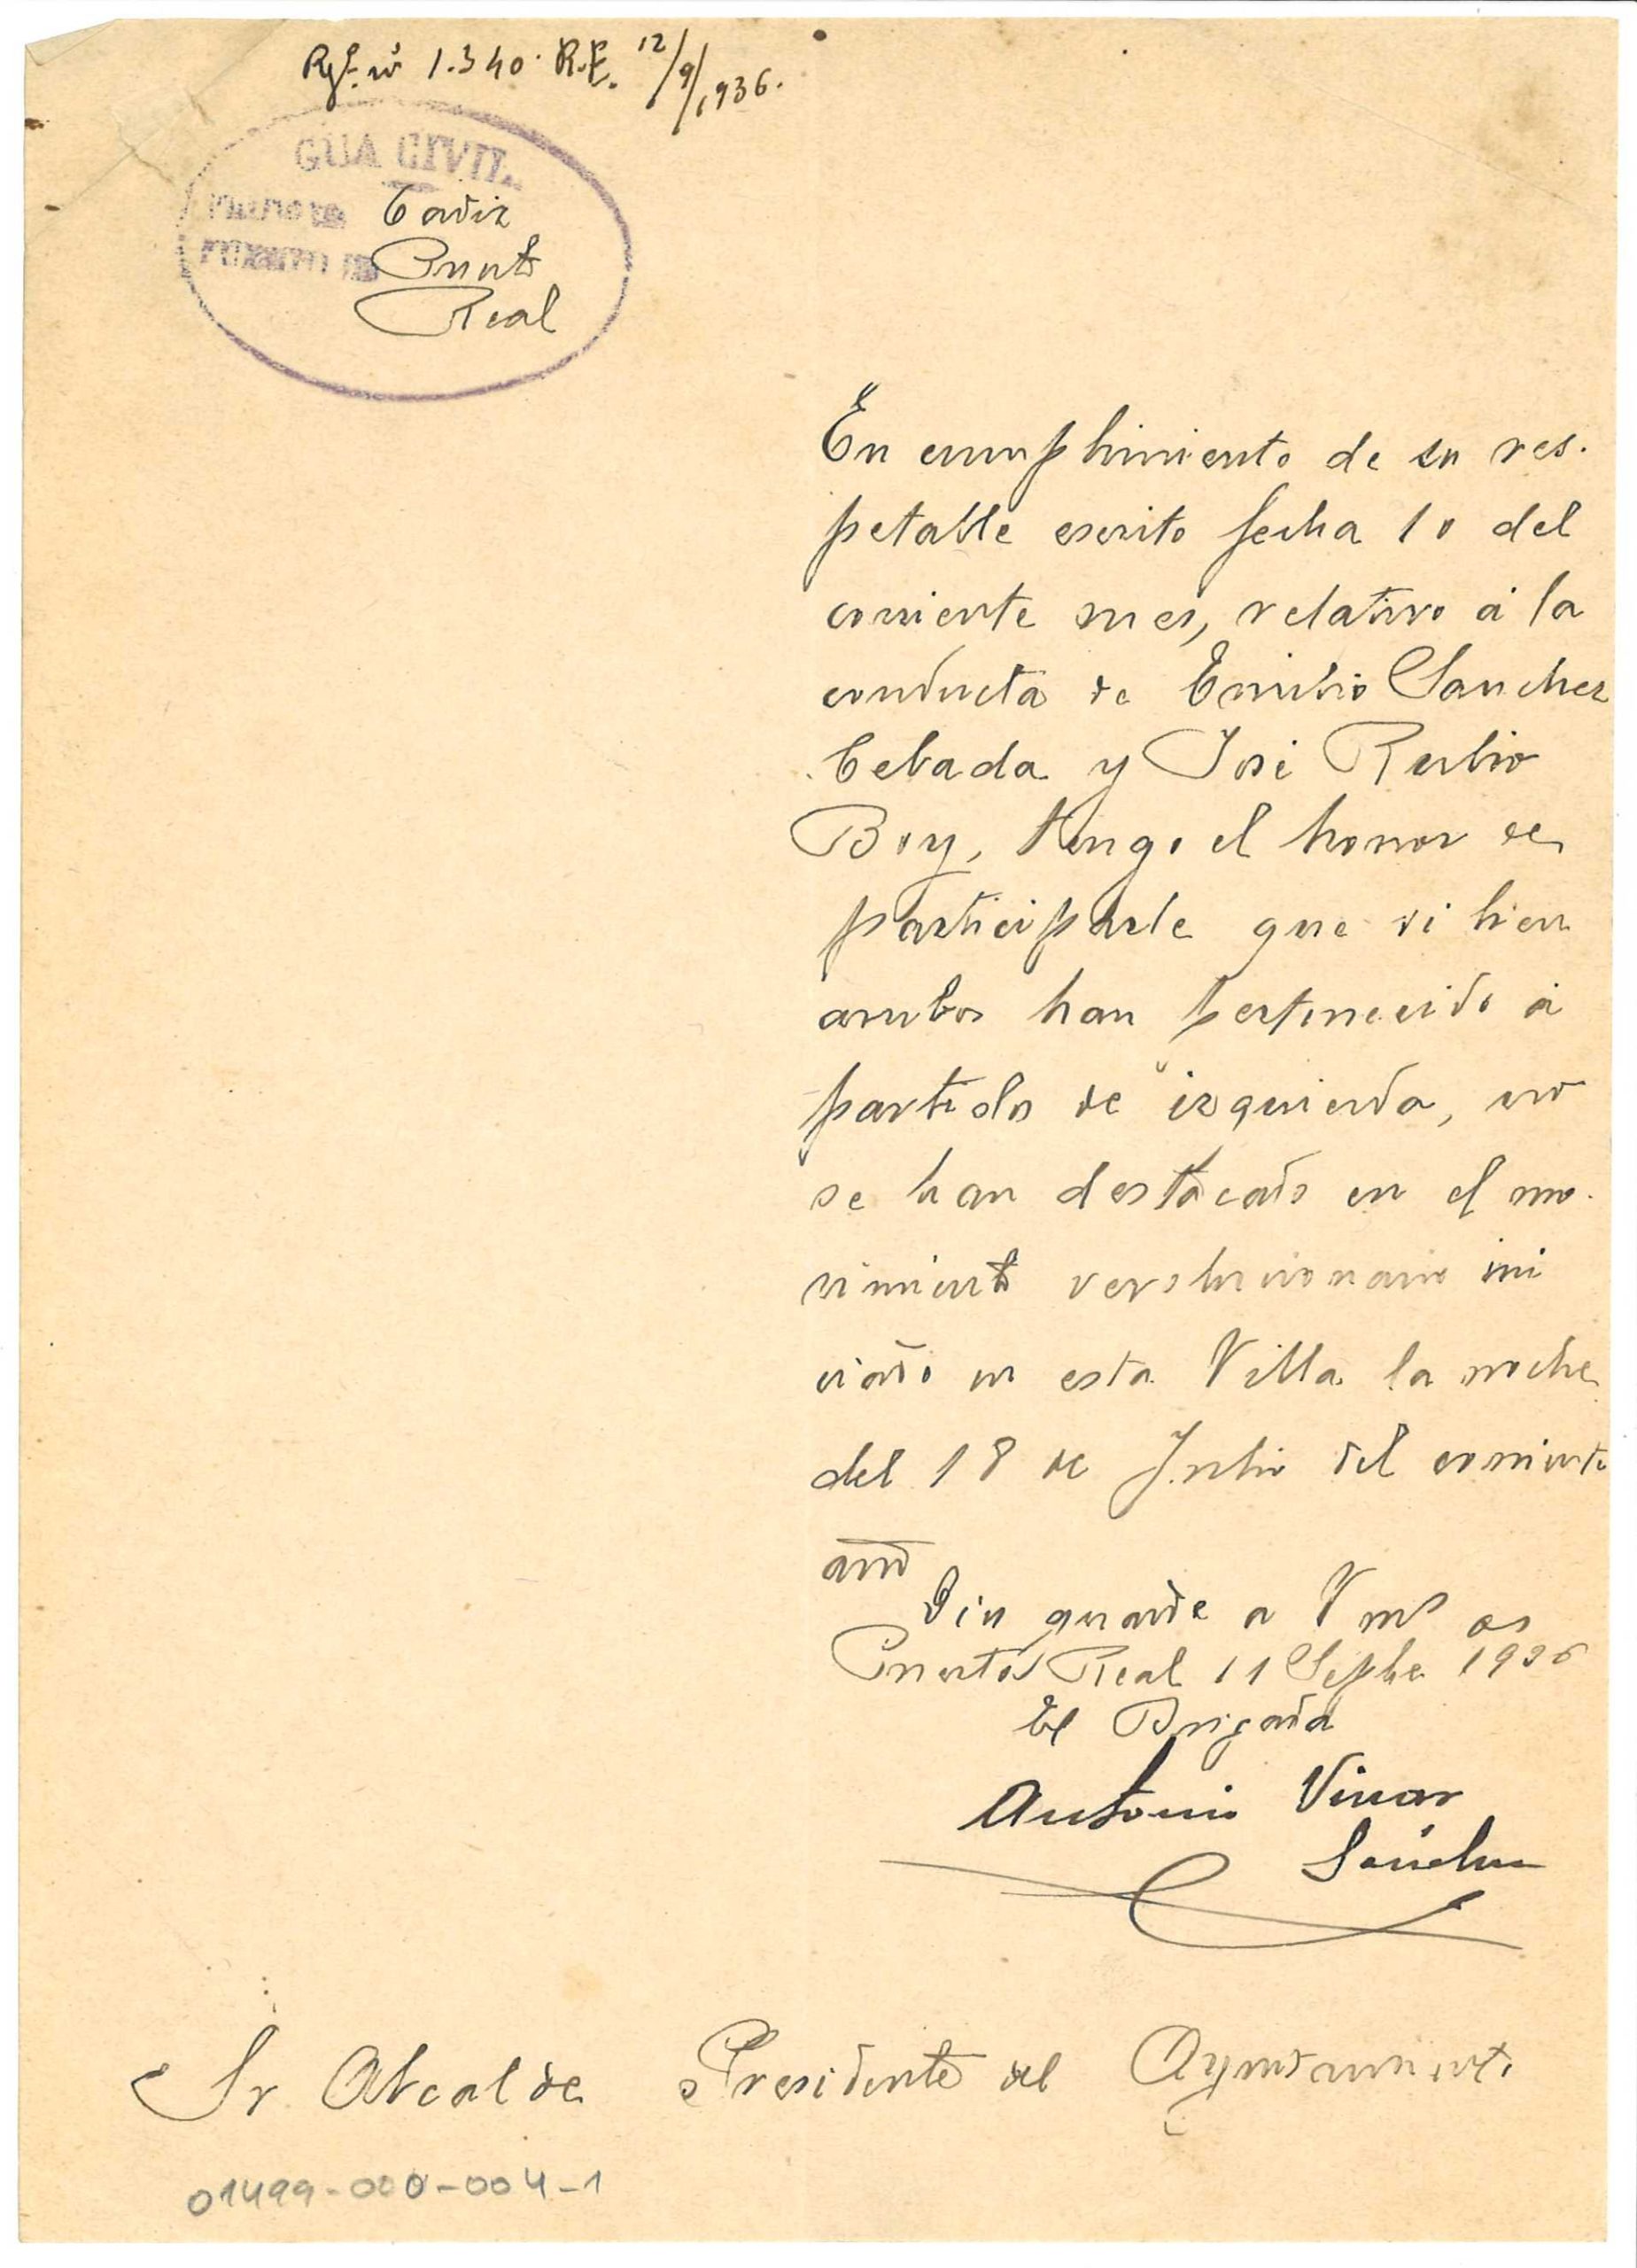 Rgº nº 1.340. R.E. 12/9/1936.
GUA CIVIL
Cadiz
PUESTO DE Puerto
Real
En cumplimiento de su res-
petable escrito fecha 10 del
corriente mes, relativo á la
conducta de Emilio Sanchez
Cebada y José Rubio
Boy, tengo el honor de
participarle que si bien
ambos han pertenecido á
partidos de izquierda, no
se han destacado en el mo-
vimiento revolucionario ini
ciado en esta Villa la noche
del 18 de Julio del corriente
año
Dios guarde a V ms as
Puerto Real 11 Sepbe 1936
El Brigada
Antonio Vivar
Sánchez
Sr Alcalde Presidente del Ayuntamiento
01499-000-004-1